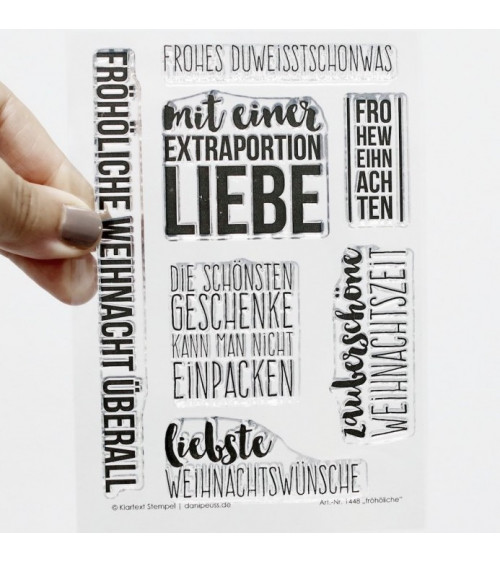 FRÖHÖLICHE WEIHNACHT ÜBERALL
FROHES DUWEISSTSCHONWAS
mit einer
EXTRAPORTION
LIEBE
FRO
HEW
EIHN
ACH
TEN
DIE SCHÖNSTEN
GESCHENKE
KANN MAN NICHT
EINPACKEN
zauberschöne
WEIHNACHTSZEIT
liebste
WEIHNACHTSWÜNSCHE
© Klartext Stempel | danipeuss.de
Art.-Nr. 1448 „fröhöliche“